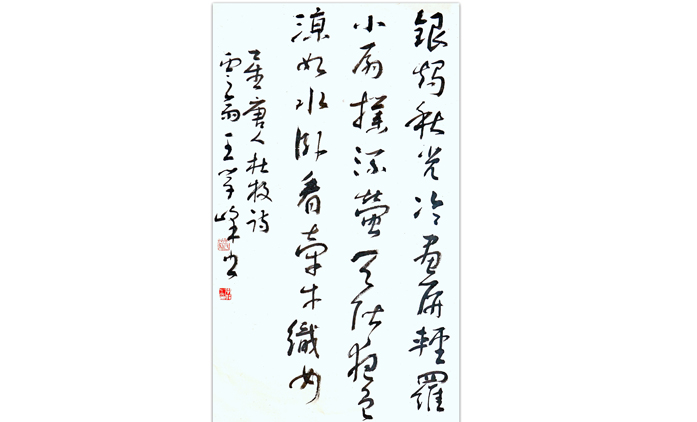 銀燭秋光冷畫屏輕羅
小扇撲流螢天階夜色
涼如水臥看牽牛織女
唐人杜牧詩
雲翁王學峰书